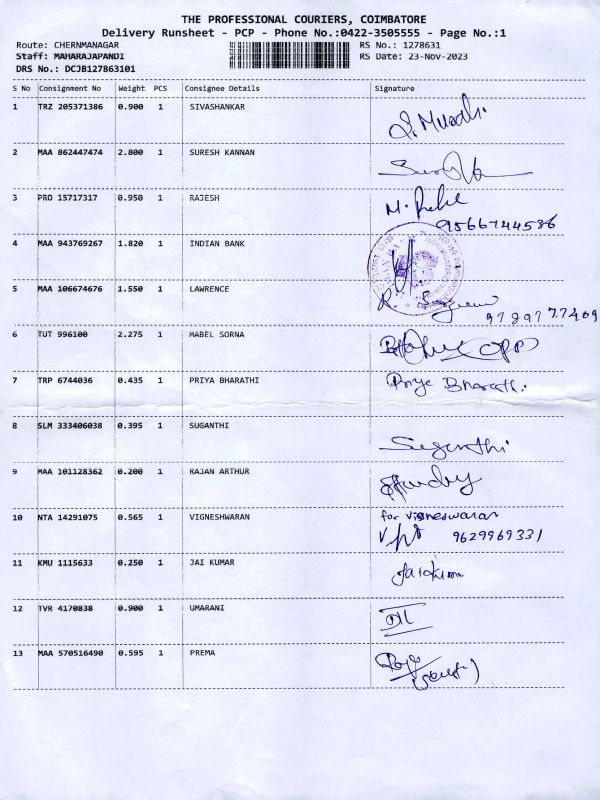 THE PROFESSIONAL COURIERS, COIMBATORE
Delivery Runsheet - PCP - Phone No.:0422-3505555 - Page No.:1
Route: CHERNMANAGAR
RS No.: 1278631
Staff: MAHARAJAPANDI
RS Date: 23-Nov-2023
DRS No.: DCJB127863101
S No Consignment No Weight PCS Consignee Details Signature
1 TRZ 205371386 0.900 1 SIVASHANKAR
2 MAA 862447474 2.800 1 SURESH KANNAN
3 PRO 15717317 0.950 1 RAJESH M.
9566744536
4 MAA 943769267 1.820 1 INDIAN BANK
5 MAA 106674676 1.550 1 LAWRENCE R.
9789777409
6 TUT 996100 2.275 1 MABEL SORNA
7 TRP 6744036 0.435 1 PRIYA BHARATHI Priya Bharathi.
8 SLM 333406038 0.395 1 SUGANTHI Suganthi
9 MAA 101128362 0.200 1 RAJAN ARTHUR
10 NTA 14291075 0.565 1 VIGNESHWARAN for Vigneswaran
9629969331
11 KMU 1115633 0.250 1 JAI KUMAR Jaikumar
12 TVR 4170838 0.900 1 UMARANI
13 MAA 570516490 0.595 1 PREMA